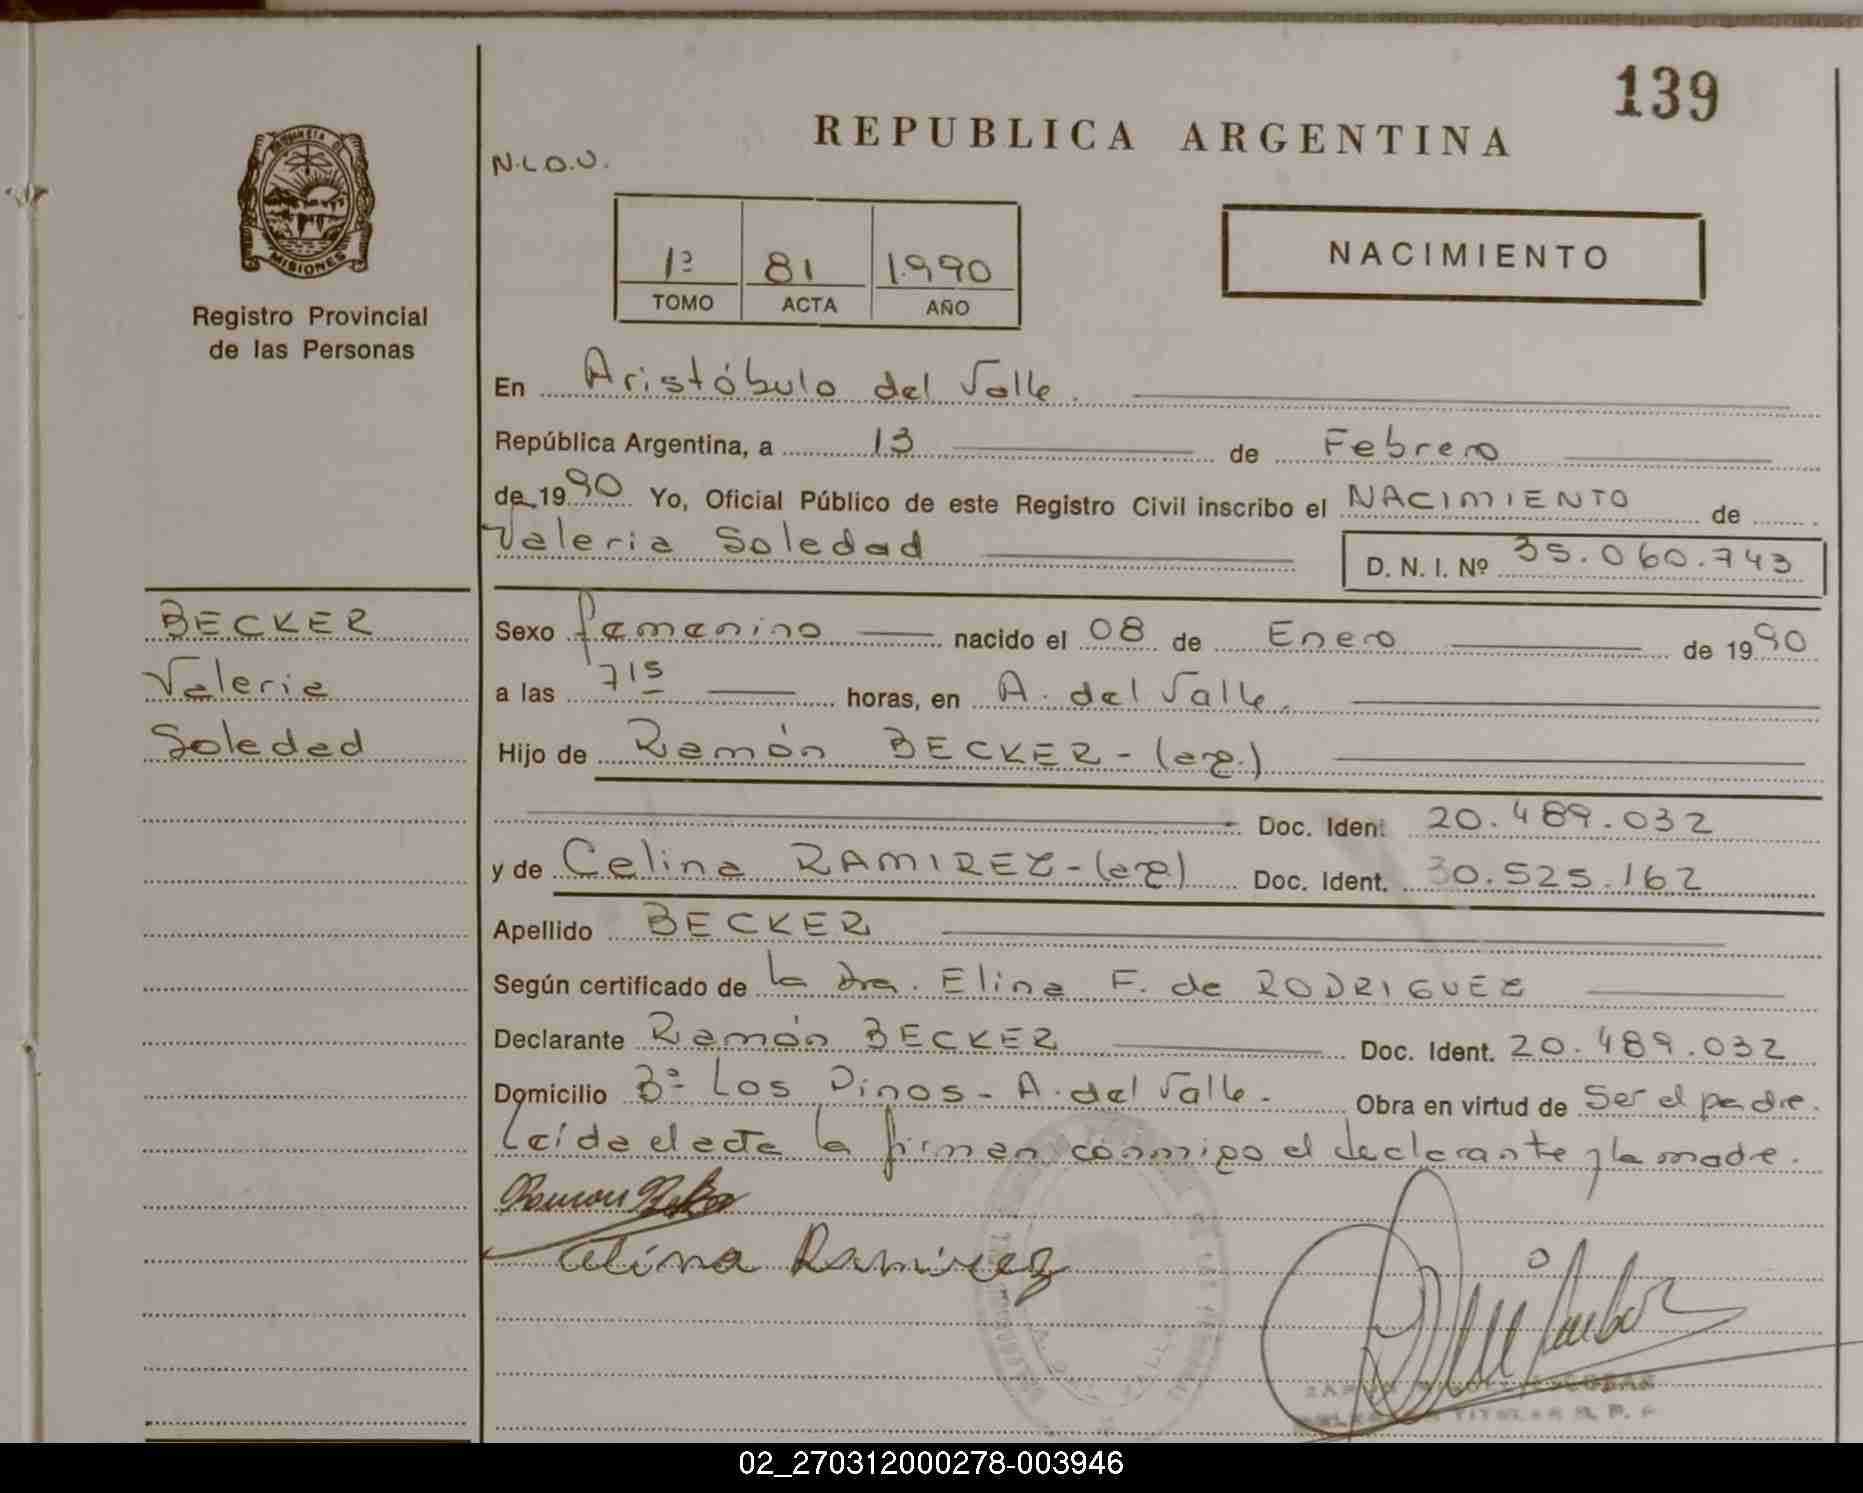 139
REPUBLICA ARGENTINA
N.L.O.U.
PROVINCIA DE
MISIONES
Registro Provincial
de las Personas
1º 81 1990
TOMO ACTA AÑO
NACIMIENTO
En Aristóbulo del Valle.
República Argentina, a 13 de Febrero
de 1990 Yo, Oficial Público de este Registro Civil inscribo el NACIMIENTO de
Valeria Soledad
D. N. I. Nº 35.060.743
BECKER
Valeria
Soledad
Sexo femenino nacido el 08 de Enero de 1990
a las 715 horas, en A. del Valle.
Hijo de Ramón BECKER - (arg.)
Doc. Ident 20.489.032
y de Celina RAMIREZ - (arg) Doc. Ident. 30.525.162
Apellido BECKER
Según certificado de la Dra. Elina F. de RODRIGUEZ
Declarante Ramón BECKER Doc. Ident. 20.489.032
Domicilio Bº Los Pinos - A. del Valle. Obra en virtud de Ser el padre.
Leida el acta la firman conmigo el declarante y la madre.
Ramon Beker
Celina Ramirez
TITULAR R. P. P.
02_270312000278-003946